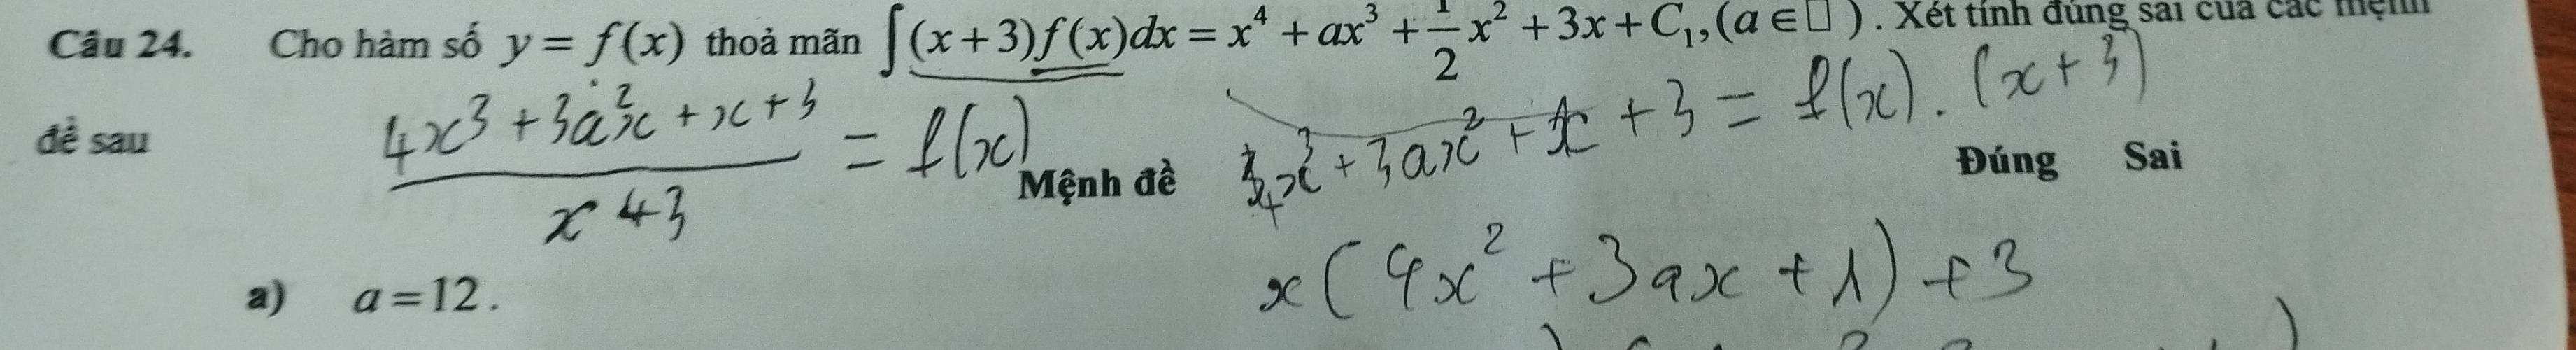 Câu 24. Cho hàm số y = f(x) thoả mãn ∫(x+3)f(x)dx = x⁴ + ax³ + 1/2 x² + 3x + C₁, (a ∈ □). Xét tính đúng sai của các mệnh
đề sau
4x³ + 3a²x + x + 3 / x + 3 = f(x)
4x³ + 3ax² + x + 3 = f(x) . (x + 3)
Mệnh đề Đúng Sai
x(4x² + 3ax + 1) + 3
a) a = 12.